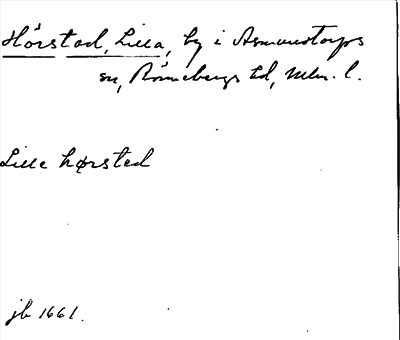 Hörstad, Lilla, by i Asmundtorps
sn, Rönnebergs hd, Mlm. l.
Lille hørsted
jb 1661.